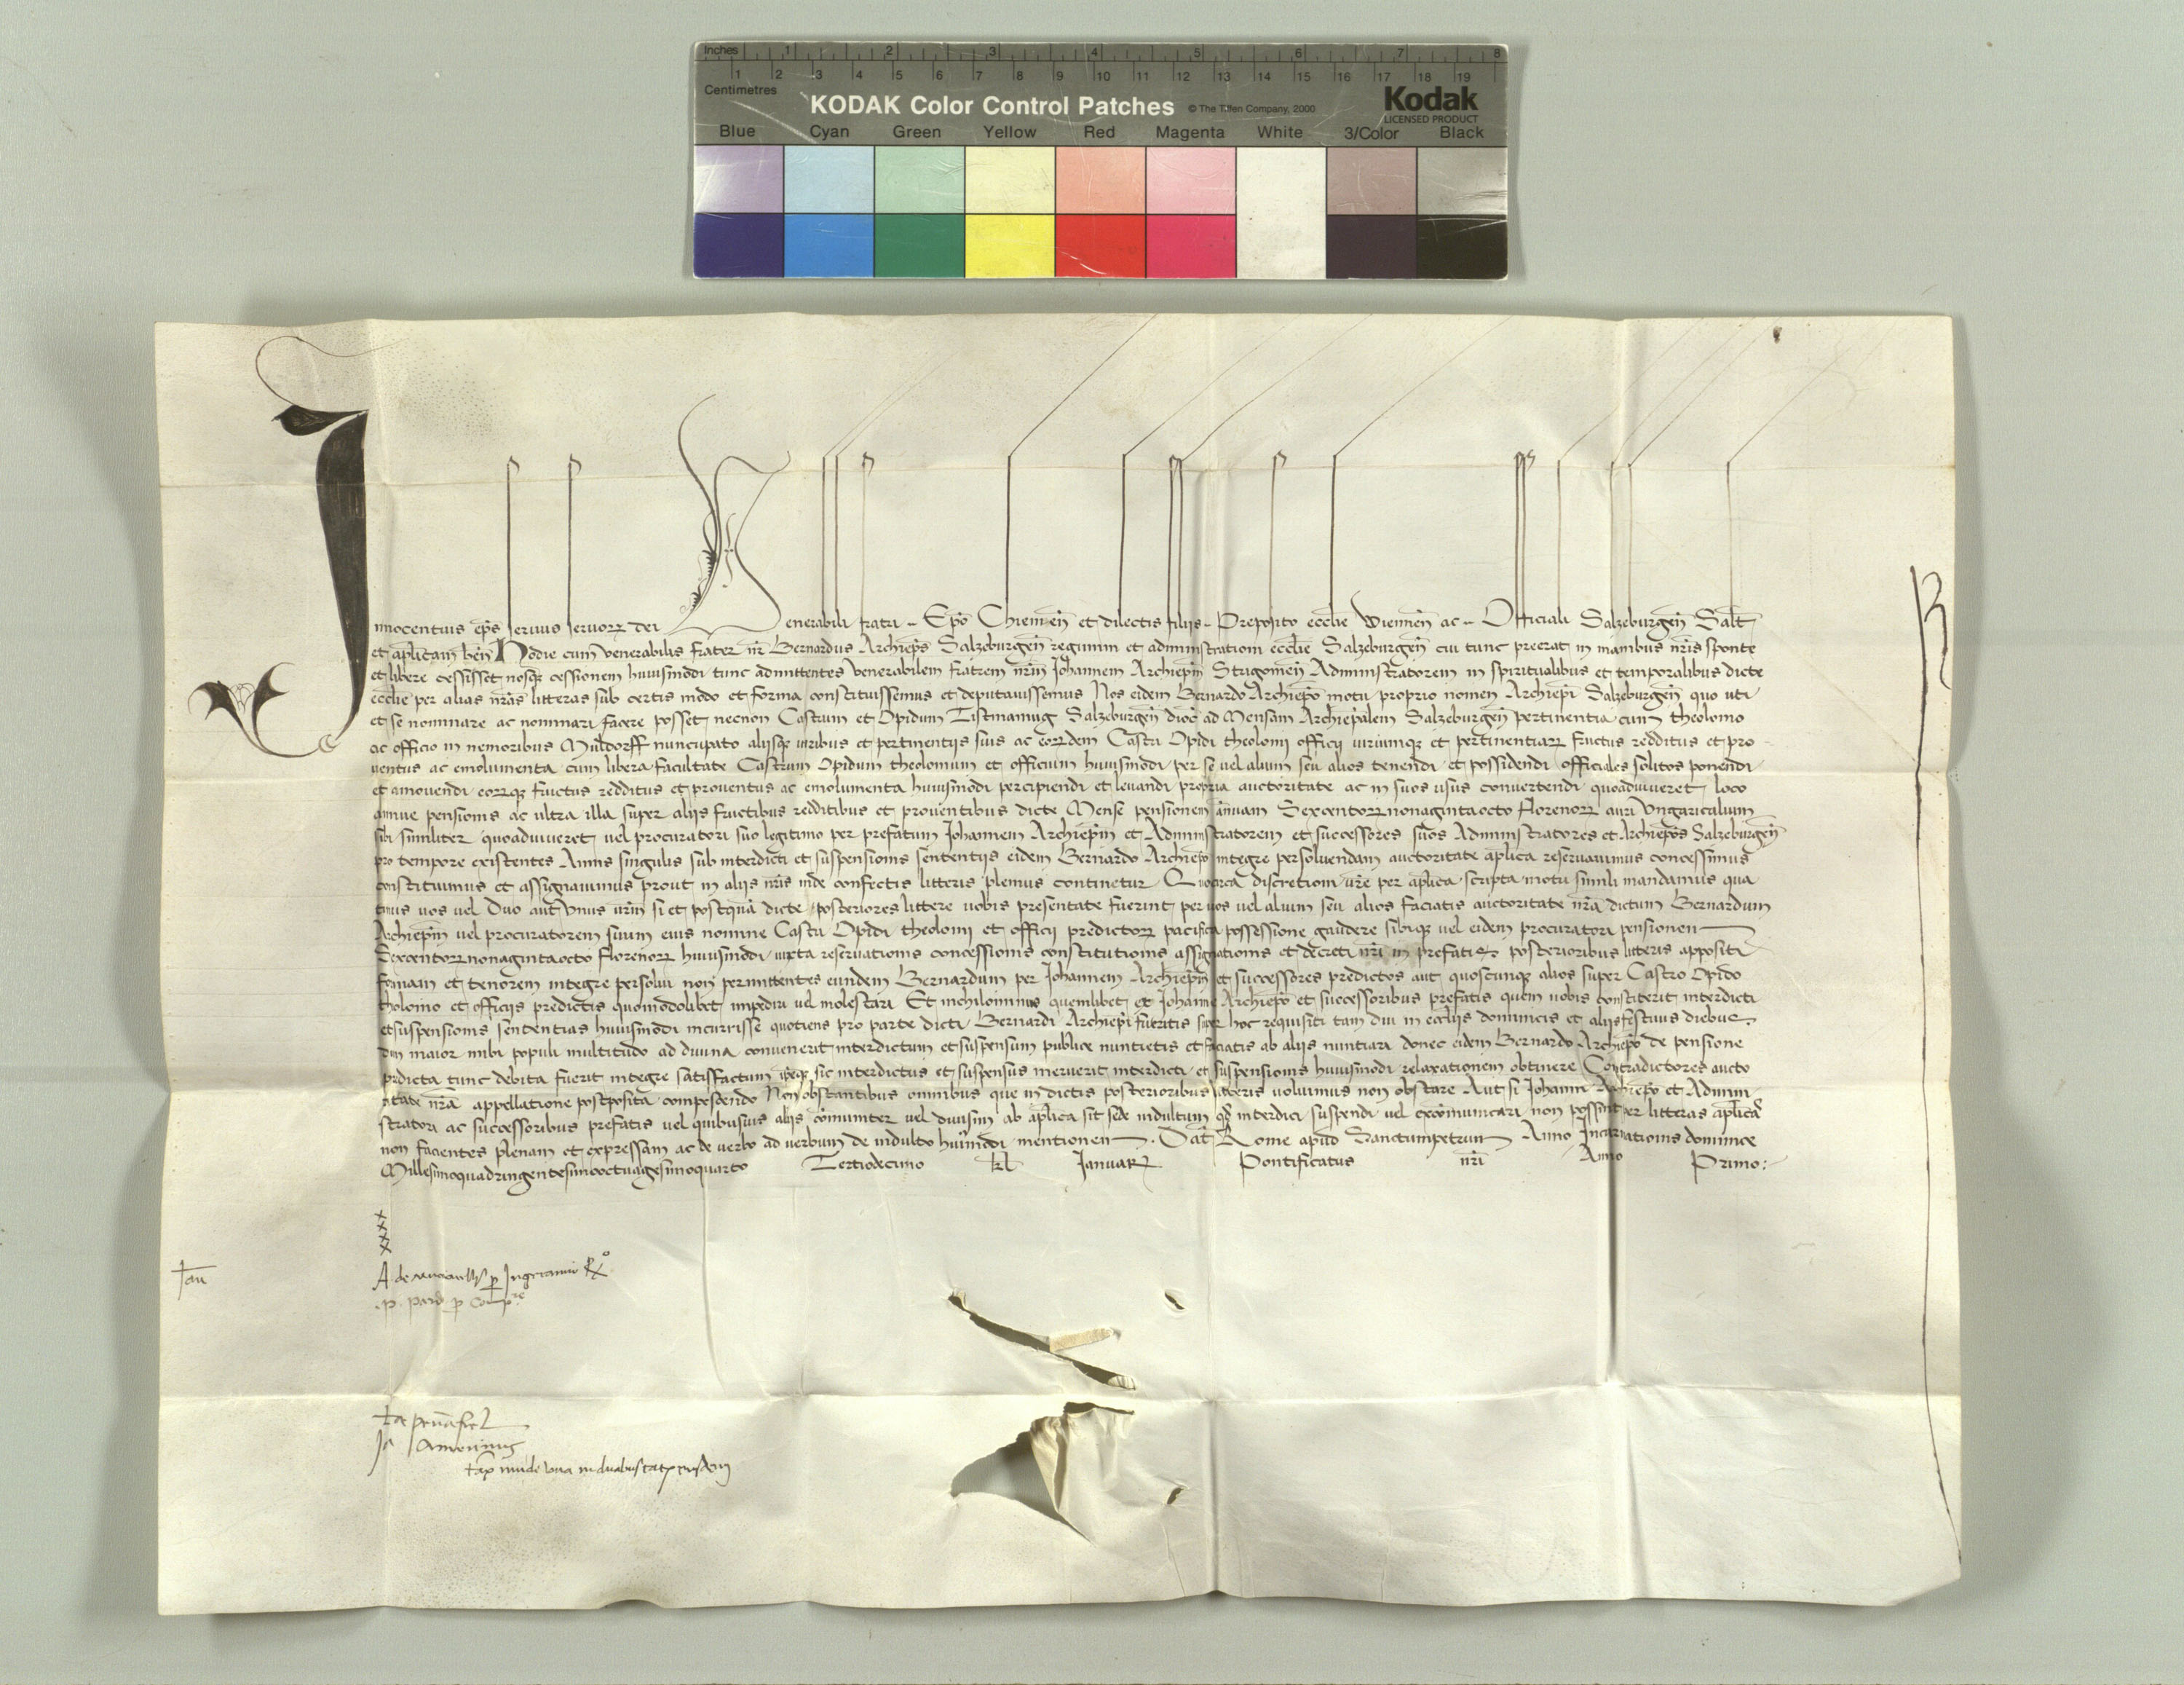 Inches 1 2 3 4 5 6 7 8
Centimetres 1 2 3 4 5 6 7 8 9 10 11 12 13 14 15 16 17 18 19
KODAK Color Control Patches © The Tiffen Company, 2000 Kodak
LICENSED PRODUCT
Blue Cyan Green Yellow Red Magenta White 3/Color Black
Innocentius ep̄s servus servorꝝ dei Venerabili fratri .. Ep̄o Chiemen̄ et dilectis filijs .. Preposito ecclīe Wiennen̄ ac .. Officiali Salzeburgen̄ Salt̄
et aplīcam ben̄ Hodie cum venerabilis frater nr̄ Bernardus Archiep̄s Salzeburgen̄ regimini et administrationi ecclīe Salzeburgen̄ cui tunc preerat in manibus nr̄is sponte
et libere cessisset nosqꝫ cessionem huiusmodi tunc admittentes venerabilem fratrem nr̄m Johannem Archiep̄m Strigonien̄ Administratorem in spiritualibus et temporalibus dicte
ecclīe per alias nr̄as litteras sub certis modo et forma constituissemus et deputavissemus Nos eidem Bernardo Archiep̄o motu proprio nomen Archiep̄i Salzeburgen̄ quo uti
et se nominare ac nominari facere posset necnon Castrum et Opidum Titsmaning Salzeburgen̄ dioc̄ ad Mensam Archiep̄alem Salzeburgen̄ pertinentia cum theolonio
ac officio in nemoribus Muldorff nuncupato aliisqꝫ iuribus et pertinentijs suis ac eorꝝdem Castri Opidi theolonii officii iuriumqꝫ et pertinentiarꝝ fructus redditus et pro
ventus ac emolumenta cum libera facultate Castrum Opidum theolonium et officium huiusmodi per se vel alium seu alios tenendi et possidendi officiales solitos ponendi
et amovendi eorꝝqꝫ fructus redditus et proventus ac emolumenta huiusmodi percipiendi et levandi propria auctoritate ac in suos usus convertendi quoadviveret loco
annue pensionis ac ultra illa super aliis fructibus redditibus et proventibus dicte Mense pensionem annuam Sexcentorꝝ nonagintaocto florenorꝝ auri Ungaricalium
sibi similiter quoadviveret vel procuratori suo legitimo per prefatum Johannem Archiep̄m et Administratorem et successores suos Administratores et Archiep̄os Salzeburgen̄
pro tempore existentes Annis singulis sub interdicti et suspensionis sententijs eidem Bernardo Archiep̄o integre persolvendam auctoritate aplīca reservavimus concessimus
constituimus et assignavimus prout in aliis nr̄is inde confectis litteris plenius continetur Quocirca discretioni vr̄e per aplīca scripta motu simili mandamus qua
tinus vos vel Duo aut Unus vr̄m si et postquā dicte posteriores littere vobis presentate fuerint per vos vel alium seu alios faciatis auctoritate nr̄a dictum Bernardum
Archiep̄m vel procuratorem suum eius nomine Castri Opidi theolonii et officii predictorꝝ pacifica possessione gaudere sibiqꝫ vel eidem procuratori pensionem
Sexcentorꝝ nonagintaocto florenorꝝ huiusmodi iuxta reservationis concessionis constitutionis assignationis et decreti nr̄i in prefatis posterioribus litteris appositi
formam et tenorem integre persolvi non permittentes eundem Bernardum per Johannem Archiep̄m et successores predictos aut quoscunqꝫ alios super Castro Opido
theolonio et officijs predictis quomodolibet impediri vel molestari Et nichilominus quemlibet et Johannē Archiep̄o et successoribus prefatis quem vobis constiterit interdicti
et suspensionis sententias huiusmodi incurrisse quotiens pro parte dicti Bernardi Archiep̄i fueritis super hoc requisiti tam diu in ecclīis dominicis et aliis festivis diebus
dum maior inibi populi multitudo ad divina convenerit interdictum et suspensum publice nuntietis et faciatis ab aliis nuntiari donec eidem Bernardo Archiep̄o de pensione
predicta tunc debita fuerit integre satisfactum ipseqꝫ sic interdictus et suspensus meruerit interdicti et suspensionis huiusmodi relaxationem obtinere Contradictores aucto
ritate nr̄a appellatione postposita compescendo Non obstantibus omnibus que in dictis posterioribus litteris voluimus non obstare Aut si Johanni Archiep̄o et Admini
stratori ac successoribus prefatis vel quibusvis aliis cōmuniter vel divisim ab aplīca sit sede indultum qꝫ interdici suspendi vel excōmunicari non possint per litteras aplīcas
non facientes plenam et expressam ac de verbo ad verbum de indulto huiusmodi mentionem . Dat̄ Rome apud Sanctumpetrum Anno Incarnationis dominice
Millesimoquadringentesimooctuagesimoquarto Tertiodecimo kl̄ Januarꝝ Pontificatus nr̄i Anno Primo :
xxxx
Jan̄